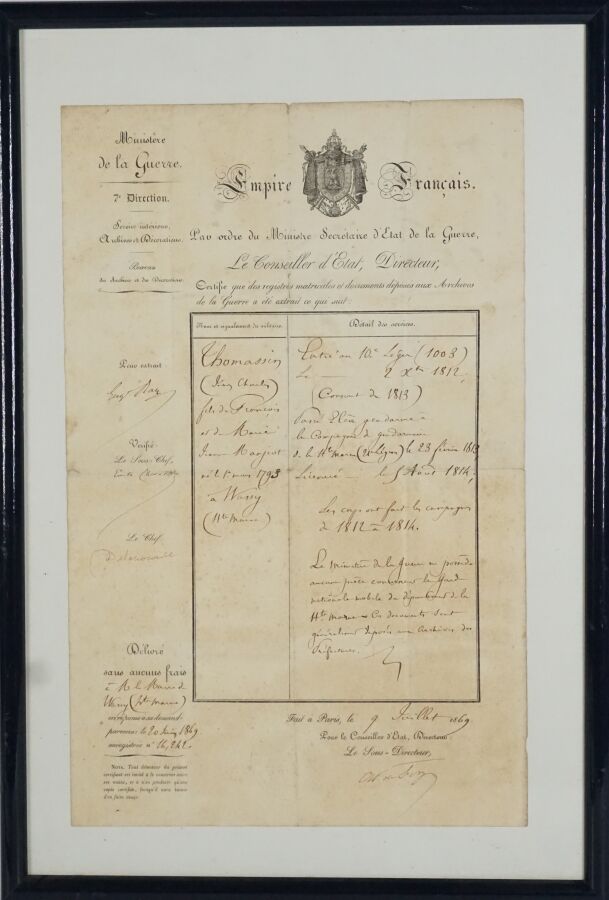 Ministère
de la Guerre.
7e Direction.
Service intérieur,
Archives et Décorations.
Bureau
des Archives et des Décorations.
Empire Français.
Par ordre du Ministre Secrétaire d'Etat de la Guerre,
Le Conseiller d'Etat, Directeur,
Certifie que des registres matricules et documents déposés aux Archives
de la Guerre a été extrait ce qui suit:
Nom et signalement du militaire.
Détail des services.
Thomassin
(Jean Charles)
fils de François
et de Marie
Jeanne Margot
né le 1er mars 1793
à Wassy
(Hte Marne)
Entré au 10e Léger (1003)
Le 2 Xbre 1812,
(Conscrit de 1813)
Passé Elève gendarme à
la Compagnie de gendarmerie
de la Hte Marne le 23 février 1813
Licencié le 5 Août 1814;
Ces corps ont fait les campagnes
de 1812 à 1814.
Le ministère de la Guerre ne possède
aucune pièce concernant la Garde
nationale mobile du département de la
Hte Marne. Ces documents sont
généralement déposés aux Archives des
Préfectures.
Pour extrait
Vérifié
Le Sous-Chef,
Le Chef,
Délivré
sans aucuns frais
à M. le Maire de
Wassy (Hte Marne)
en réponse à sa demande
parvenue le 20 Juin 1869
enregistrée n° 16,242.
Nota. Tout détenteur du présent
certificat est invité à le conserver entre
ses mains, et à n'en produire qu'une
copie certifiée, lorsqu'il aura besoin
d'en faire usage.
Fait à Paris, le 9 Juillet 1869.
Pour le Conseiller d'Etat, Directeur:
Le Sous-Directeur,